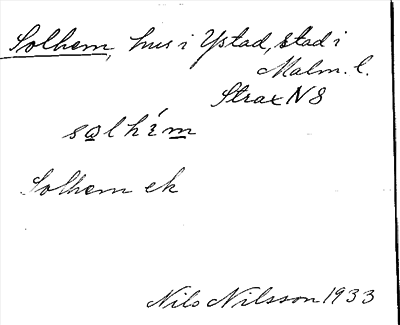 Solhem, hus i Ystad, stad i
Malm. l.
Strax N 8
solhím
Solhem ek
Nils Nilsson 1933